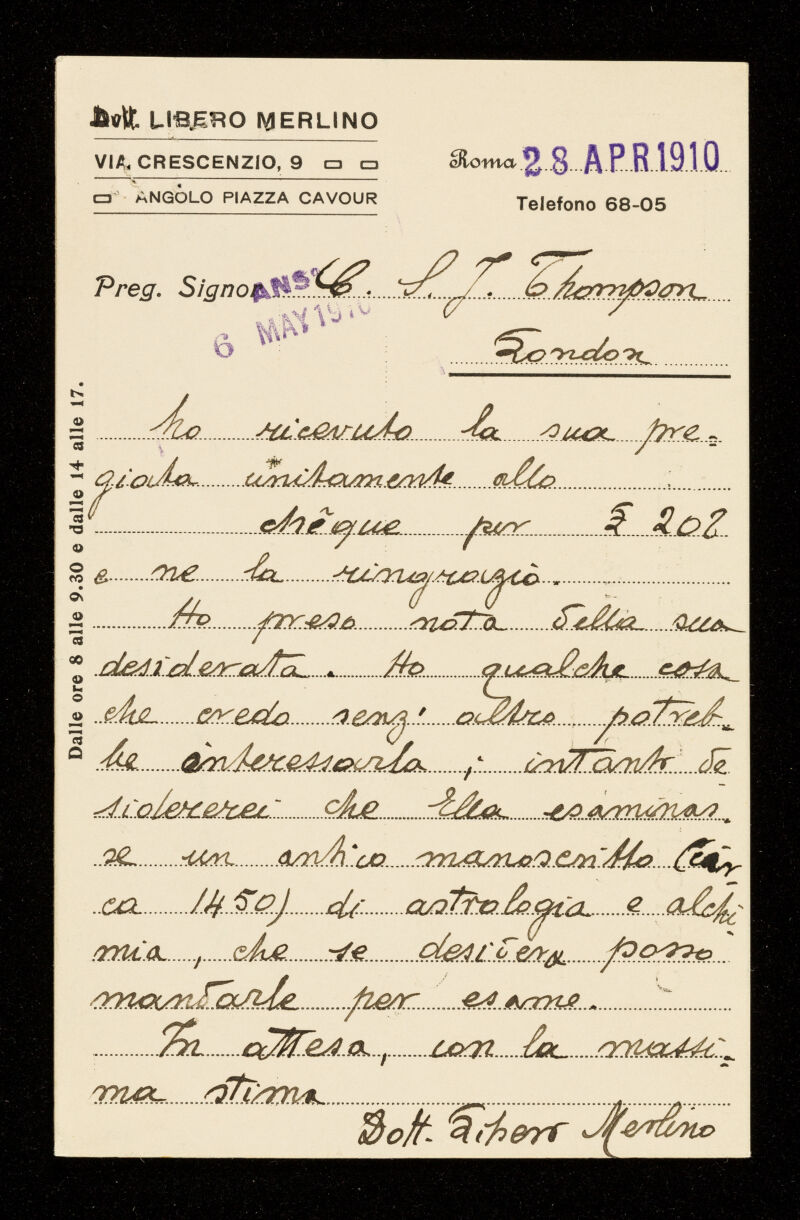 Dott. LIBERO MERLINO
VIA CRESCENZIO, 9
ANGOLO PIAZZA CAVOUR
Roma 28 APR 1910
Telefono 68-05
Preg. Signor C. S. J. Thompson
ANSD
6 MAY 1910
London
Dalle ore 8 alle 9.30 e dalle 14 alle 17.
ho ricevuto la sua pre=
giata unitamente allo
chêque per £ 202
e ne la ringrazio.
Ho preso nota della sua
desiderata. Ho qualche cosa
che credo senz' altro potreb-
be interessarla ; intanto de
sidererei che Ella esaminas-
se un antico manoscritto (cir-
ca 1450) di astrologia e alchi-
mia, che se desidera posso
mandarle per esame.
In attesa, con la massi-
ma stima
Dott. Libero Merlino